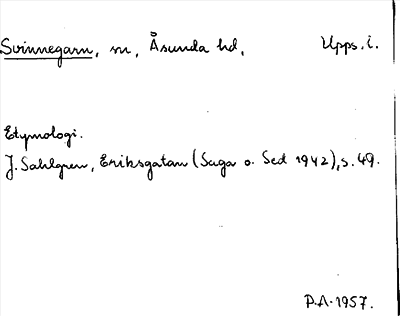 Svinnegarn, sn, Åsunda hd, Upps. l.
Etymologi.
J. Sahlgren, Eriksgatan (Saga o. Sed 1942), s. 49.
P.A. 1957.